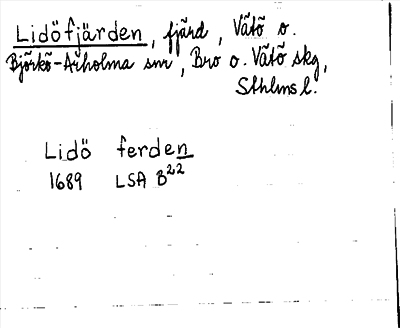 Lidöfjärden, fjärd, Vätö o.
Björkö-Arholma snr, Bro o. Vätö skg,
Sthlms l.
Lidö ferden
1689 LSA B22